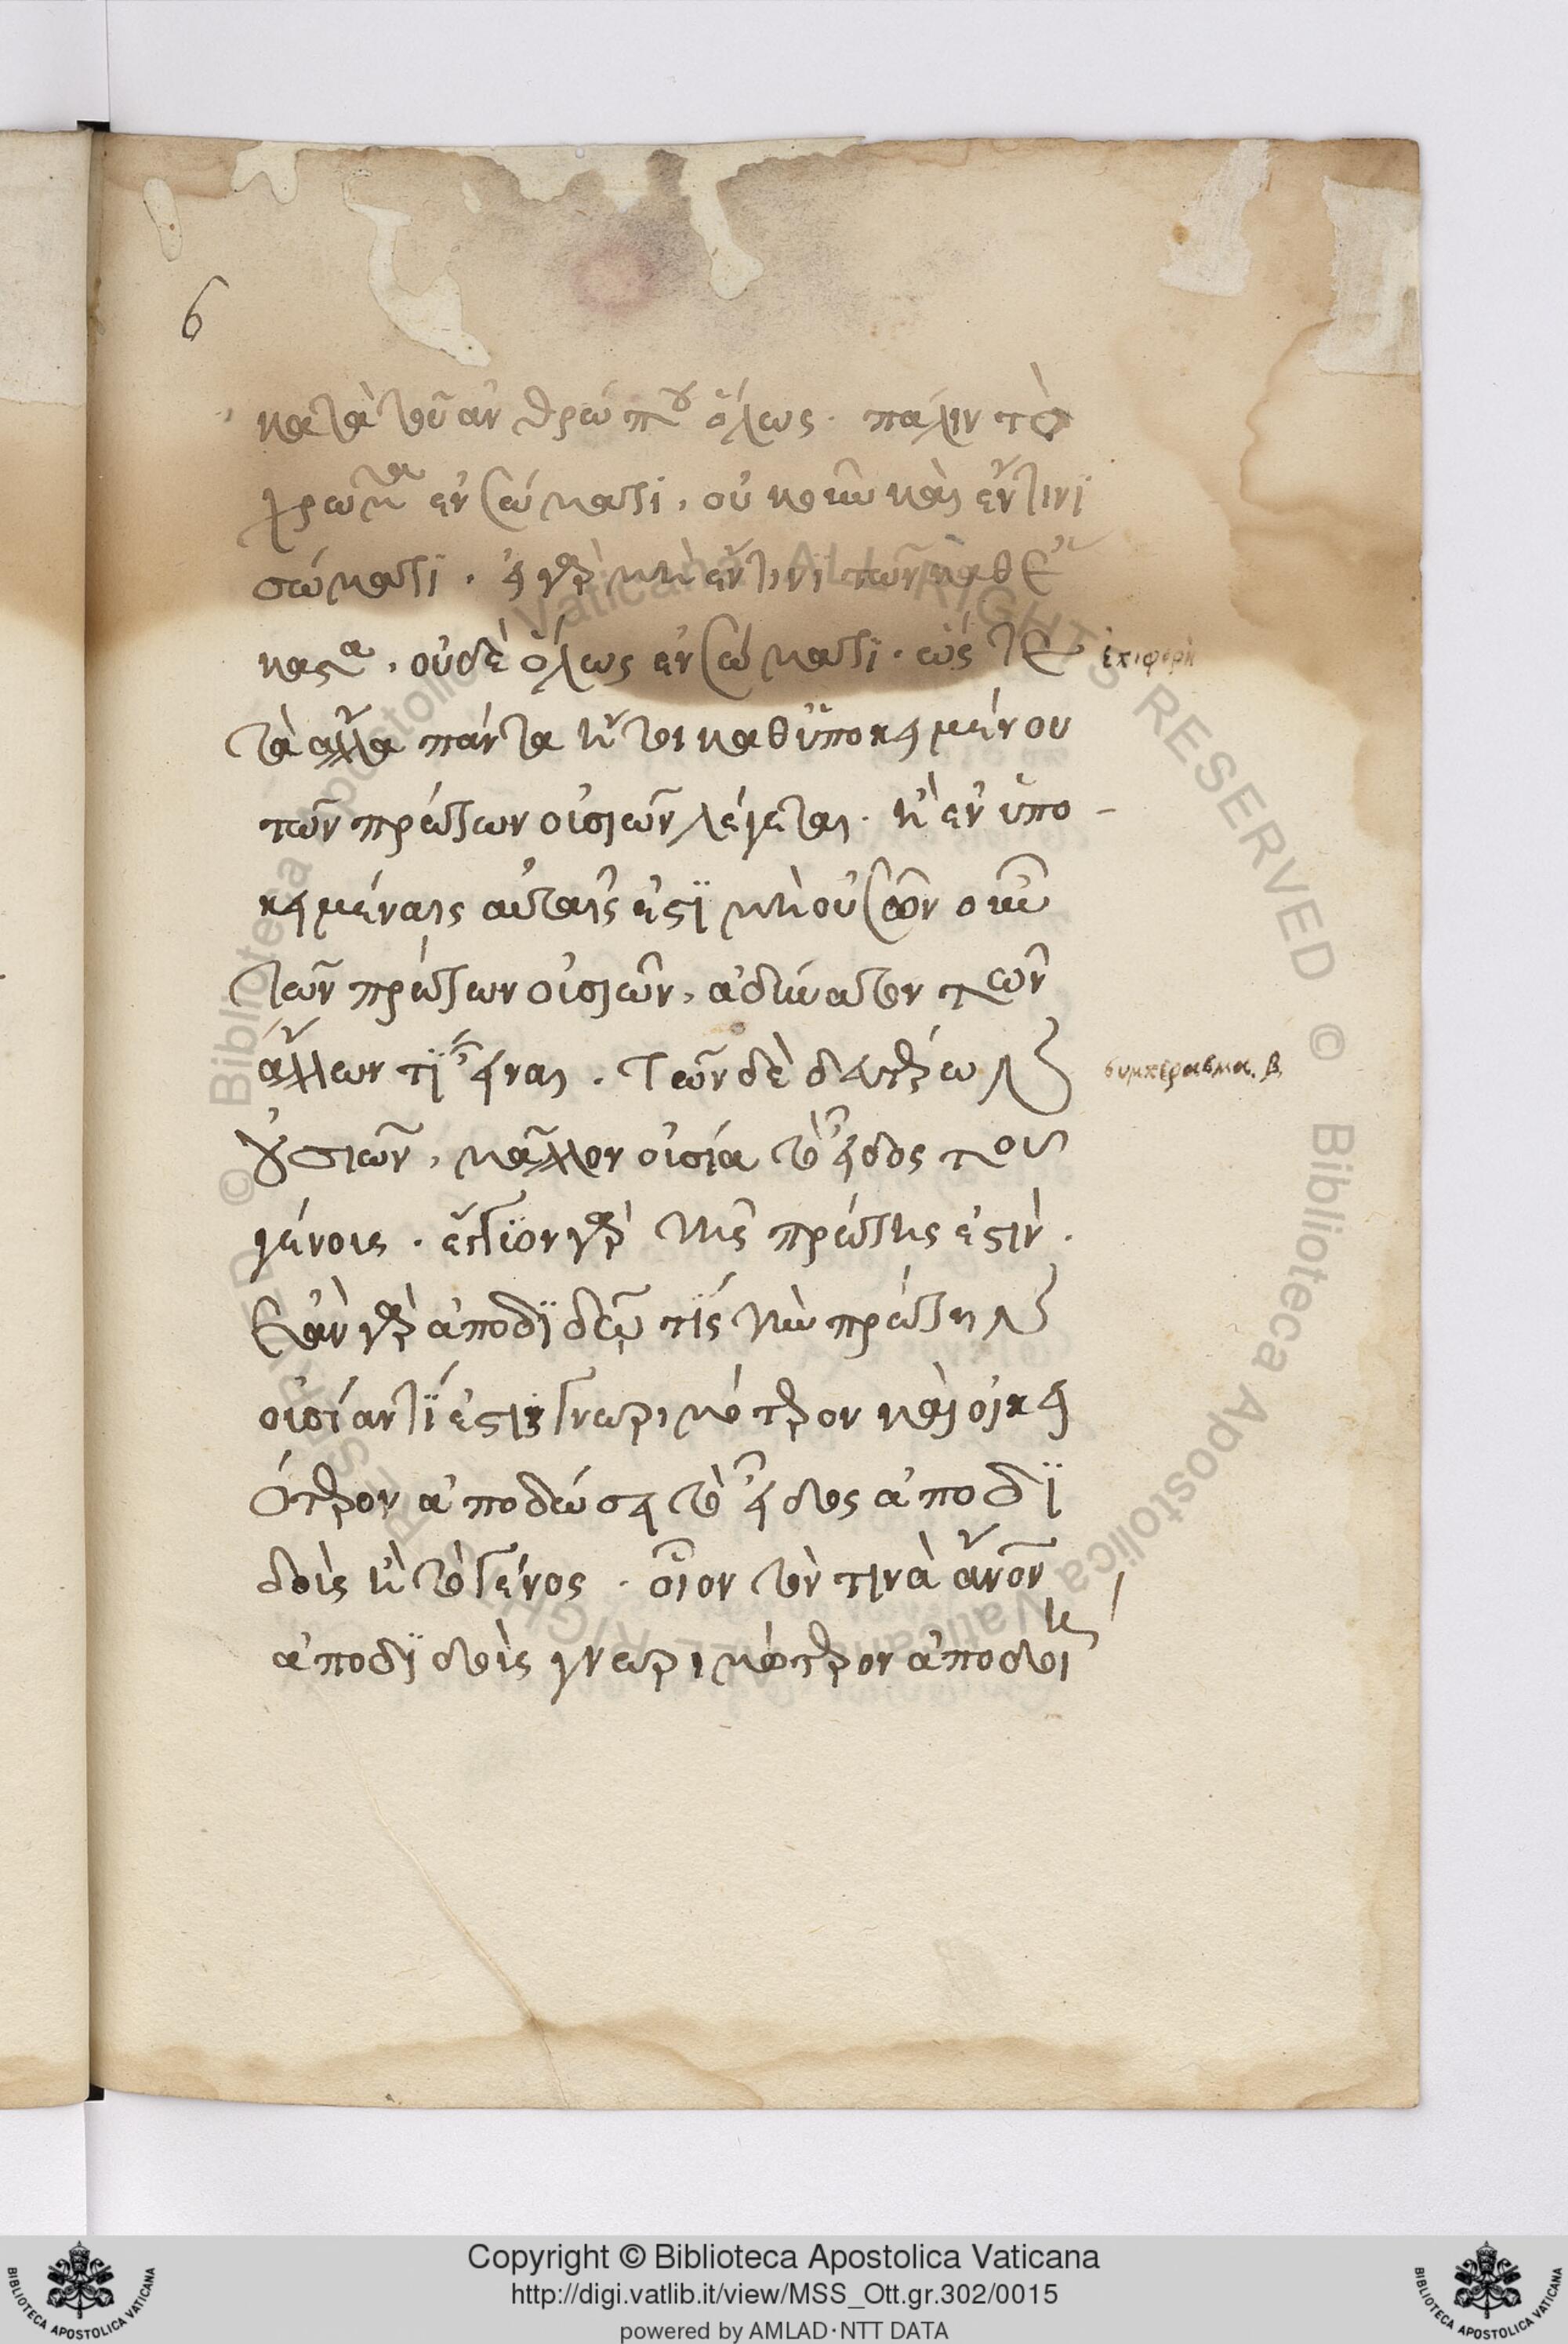 6
κατὰ τοῦ ἀνθρώπου ὅλως. πάλιν τὸ
χρῶμα ἐν σώματι, οὐκοῦν καὶ ἔν τινι
σώματι. εἰ γὰρ μὴ ἔν τινι τῶν καθέ
καστα, οὐδὲ ὅλως ἐν σώματι. ὥστε
τὰ ἄλλα πάντα ἤτοι καθ ὑποκειμένου
τῶν πρώτων οὐσιῶν λέγεται. ἢ ἐν ὑπο-
κειμέναις αὐταῖς ἐστϊ μὴ οὐσῶν οὖν
τῶν πρώτων οὐσιῶν, ἀδύνατον τῶν
ἄλλων τϊ εἶναι. Τῶν δὲ δευτέρων
οὐσιῶν, μᾶλλον οὐσία τὸ εἶδος τοῦ
γένους. ἔγγϊον γὰρ τῆς πρώτης ἐστὶν.
Ἐὰν γὰρ ἀποδϊδῷ τίς τὴν πρώτην
οὐσίαν τϊ ἐστι γνωριμότερον καὶ οἰκει
ότερον ἀποδώσει τὸ εἶδος ἀποδϊ
δοὺς ἢ τὸ γένος. οἷον τὸν τινὰ ἄνον
ἀποδϊδοὺς γνωριμότερον ἀποδοί
συμπέρασμα. β
Copyright © Biblioteca Apostolica Vaticana
http://digi.vatlib.it/view/MSS_Ott.gr.302/0015
powered by AMLAD·NTT DATA